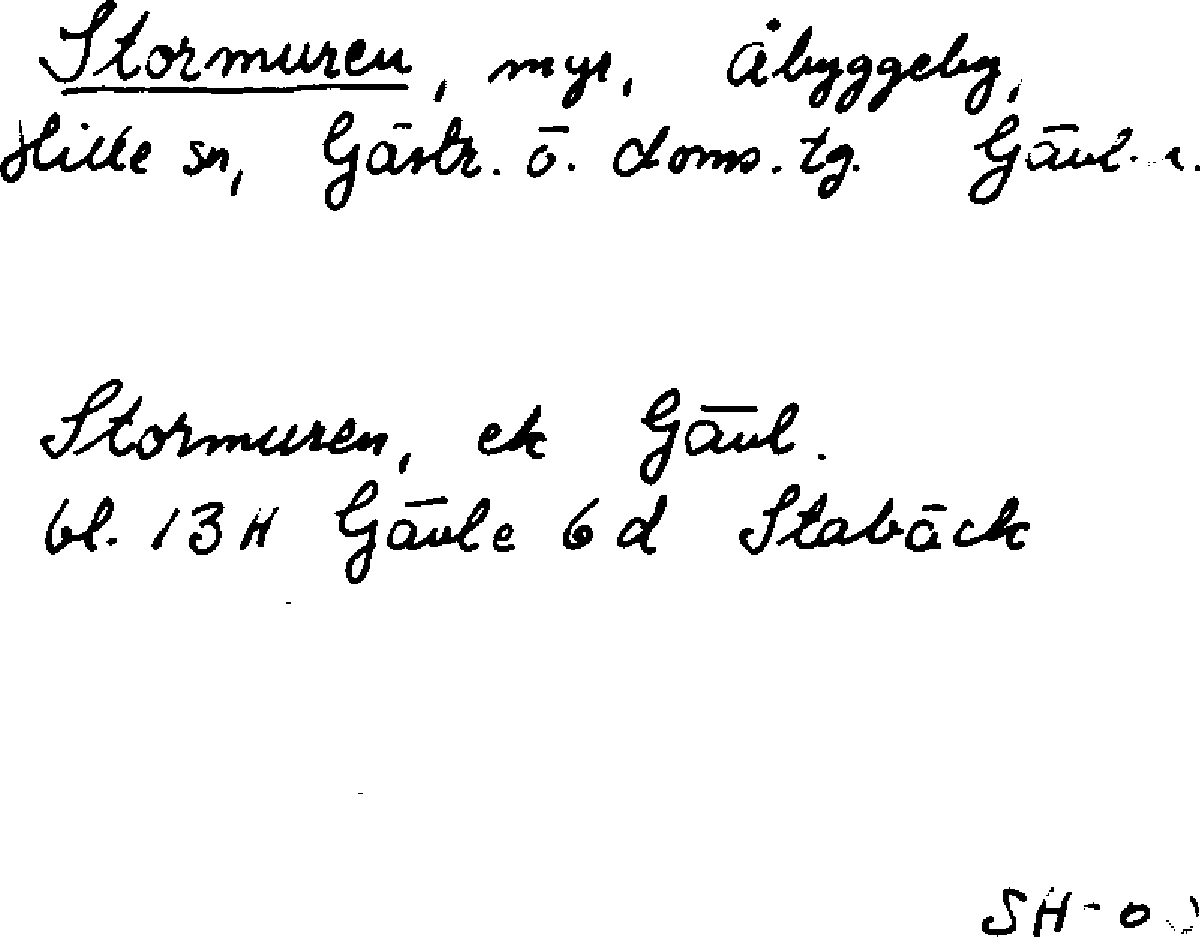 Stormuren, myr, Åbyggeby,
Hille sn, Gästr. ö. doms. tg. Gävl.
Stormuren, ek Gävl.
bl. 13H Gävle 6d Stabäck